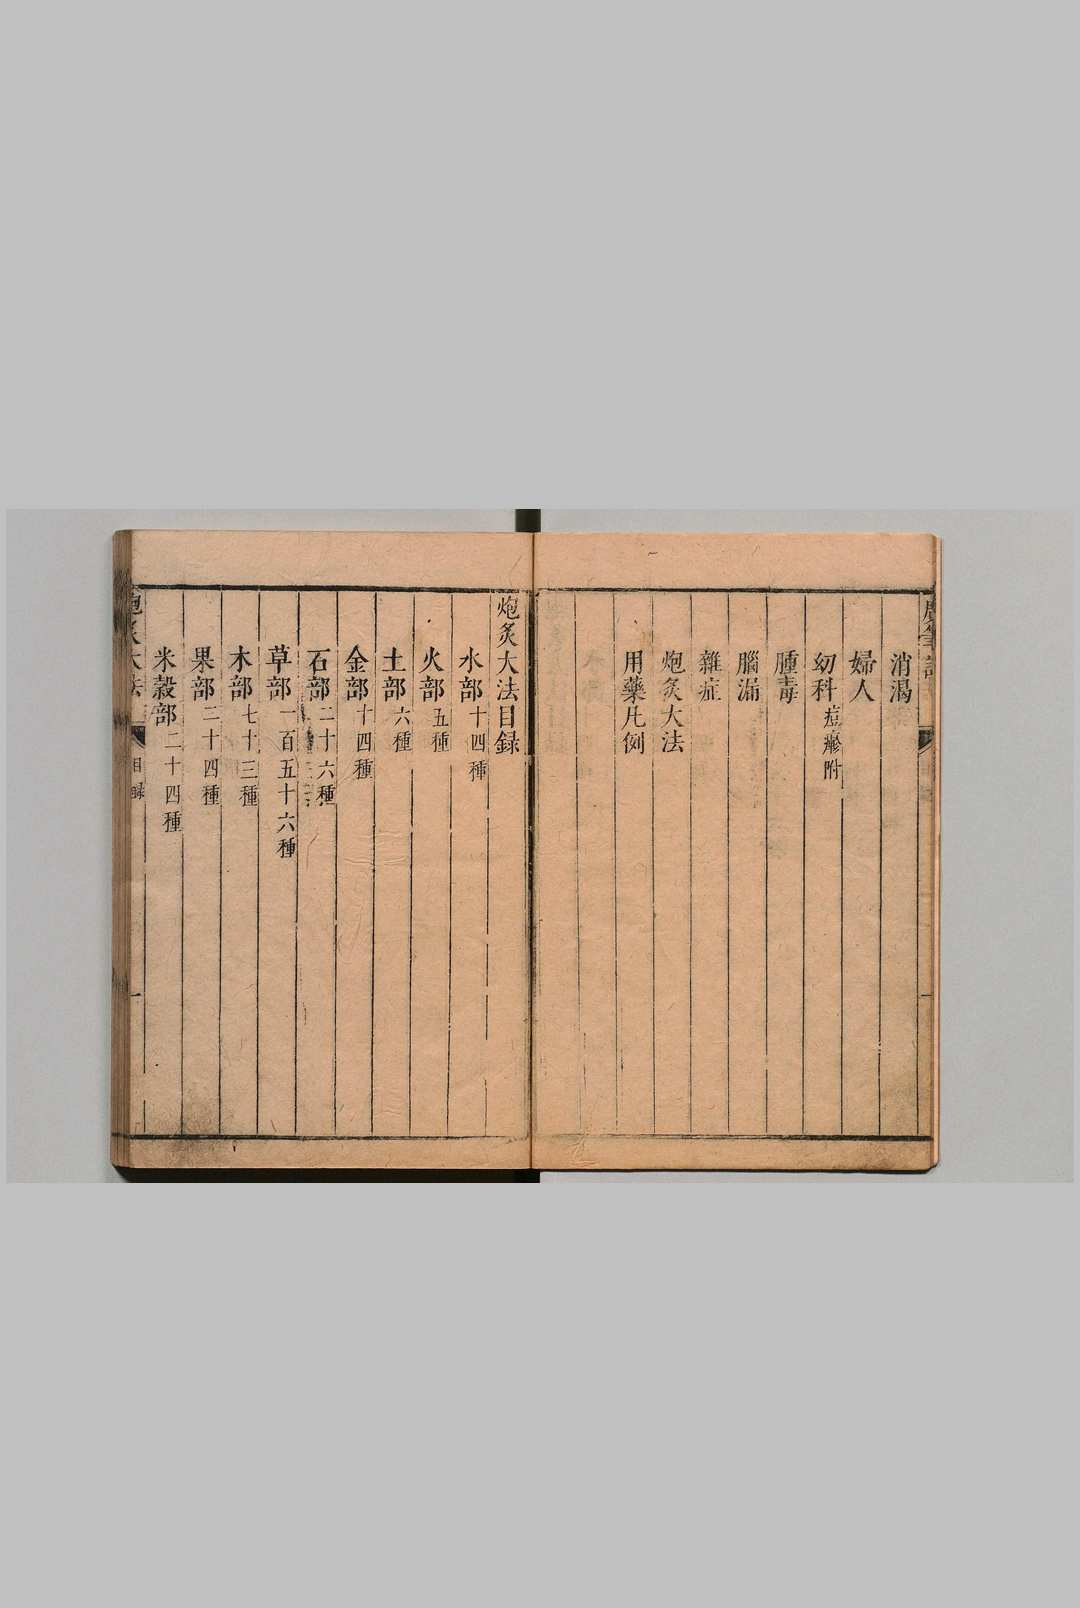 消渴
婦人
幼科 痘瘮附
腫毒
腦漏
雜症
炮炙大法
用藥凡例
炮炙大法目録
水部 十四種
火部 五種
土部 六種
金部 十四種
石部 二十六種
草部 一百五十六種
木部 七十三種
果部 二十四種
米穀部 二十四種
炮炙大法
目録
一